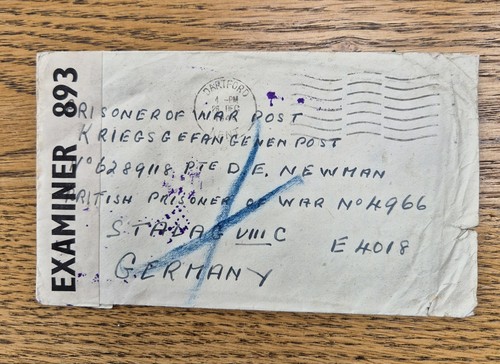 EXAMINER 893
DARTFORD
4 - PM
DEC
RISONER OF WAR POST
KRIEGSGEFANGENENPOST
No 6289118 PTE D. E. NEWMAN
RITISH PRISONER OF WAR No 4966
STALAG VIII C
E 4018
GERMANY